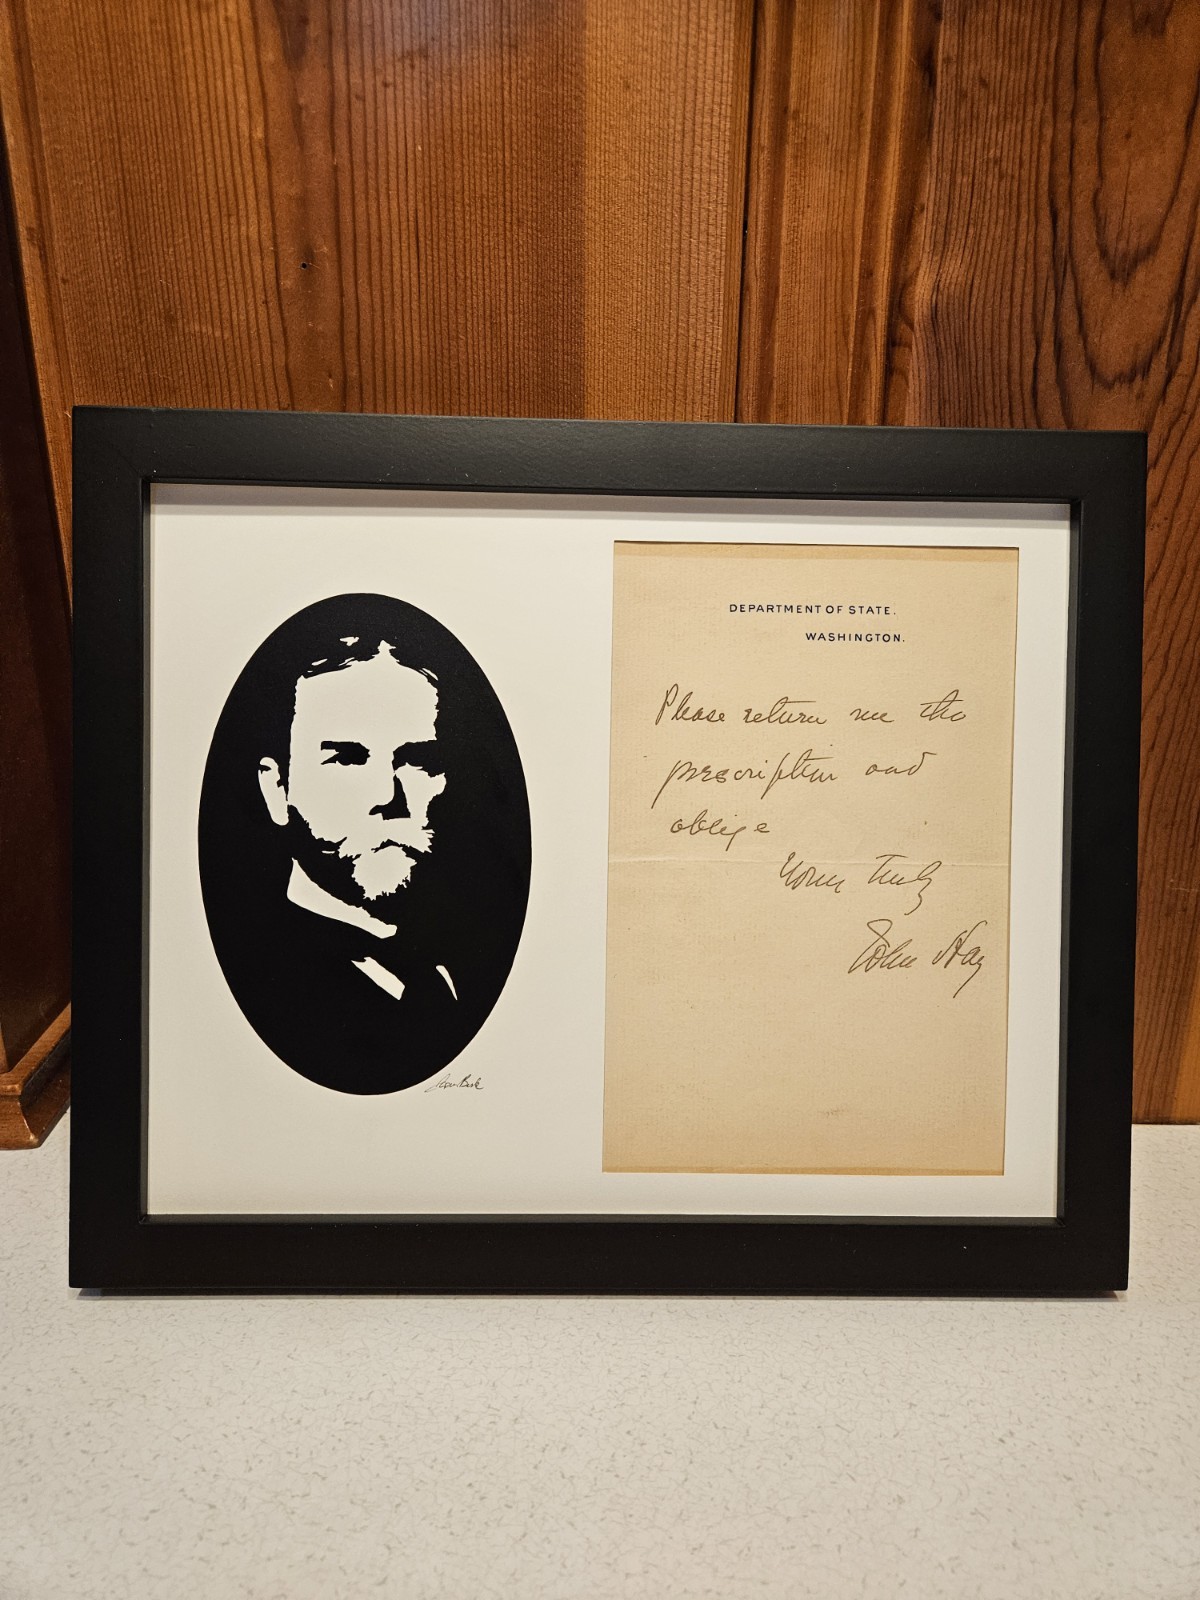 DEPARTMENT OF STATE.
WASHINGTON.
Please return me the
prescription and
oblige
Yours truly
John Hay